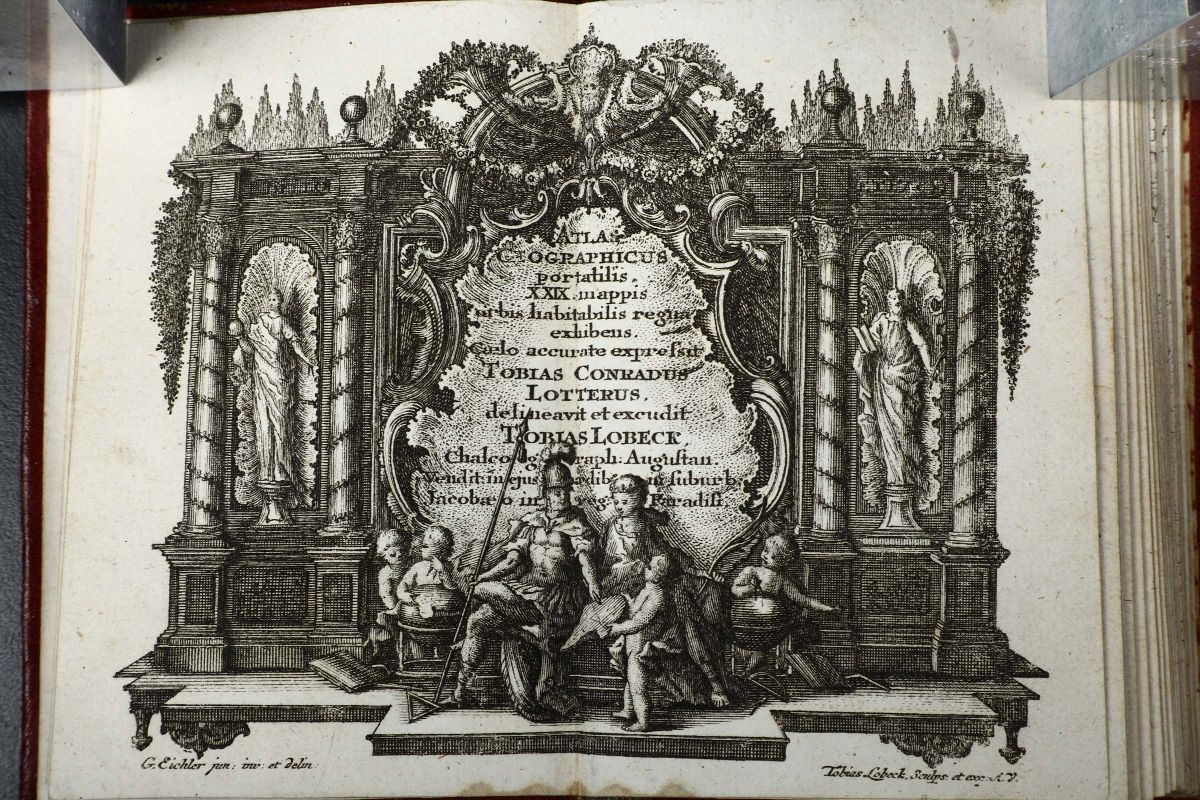 ATLAS
GEOGRAPHICUS
portatilis,
XXIX. mappis
orbis habitabilis regna
exhibens.
Cælo accurate expressit
TOBIAS CONRADUS
LOTTERUS,
delineavit et excudit
TOBIAS LOBECK,
Chalcog raph: Augustan.
Vendit: in ejus suburb.
Jacobæo in Paradiß.
G. Eichler jun: inv: et delin:
Tobias Lobeck, Sculps: et exc: A. V.